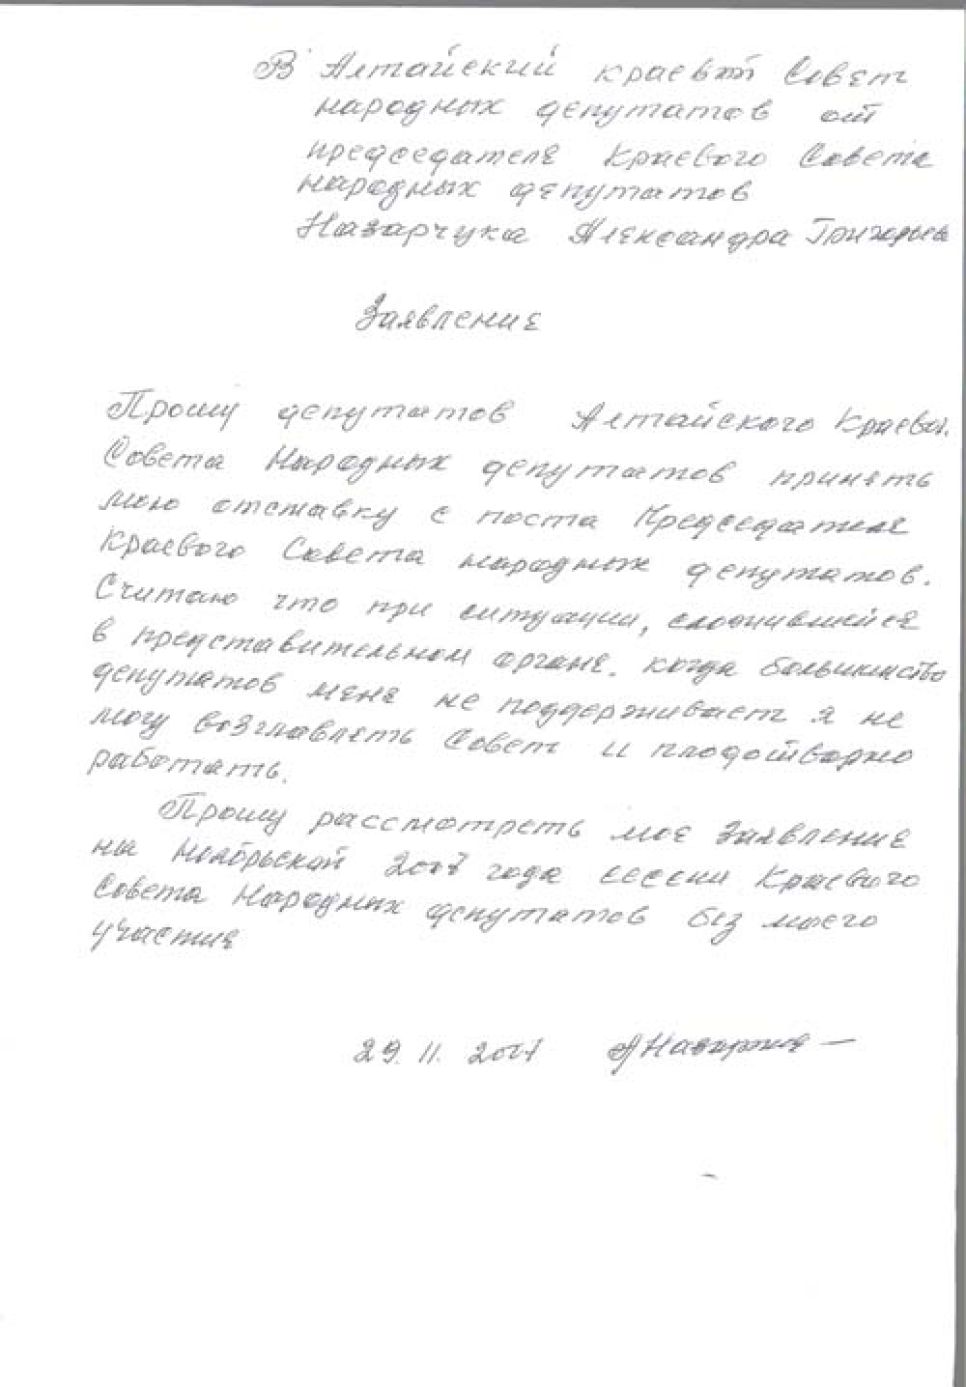 В Алтайский краевой Совет
народных депутатов от
председателя Краевого Совета
народных депутатов
Назарчука Александра Григорьев
Заявление
Прошу депутатов Алтайского Краевог.
Совета Народных депутатов принять
мою отставку с поста Председателя
Краевого Совета народных депутатов.
Считаю что при ситуации, сложившейся
в представительном органе. когда большинство
депутатов меня не поддерживает я не
могу возглавлять Совет и плодотворно
работать.
Прошу рассмотреть мое Заявление
на Ноябрьской 2007 года сессии Краевого
Совета Народных депутатов без моего
участия
29. 11. 2007 АНазарчук